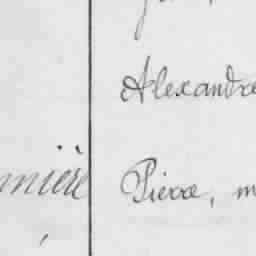 Alexandre
nnière Pierre, m